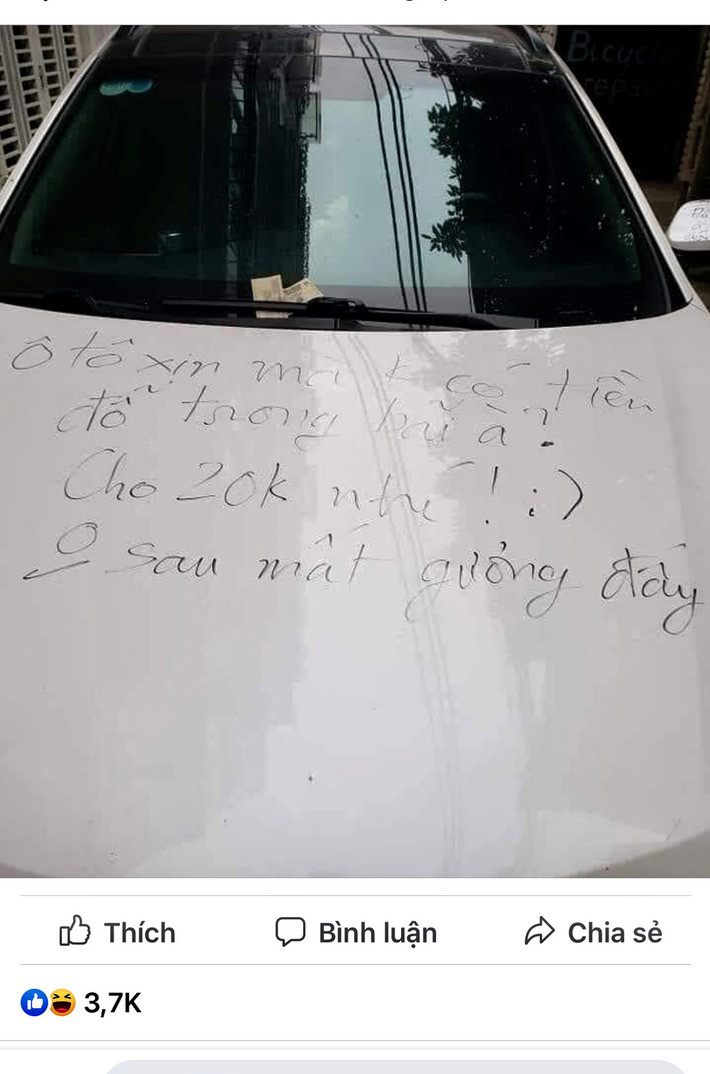 Bicycle
repair
Ô tô xịn mà k có tiền
đỗ trong bãi à?
Cho 20k nhé! :)
sau mất gương đấy
Thích
Bình luận
Chia sẻ
3,7K